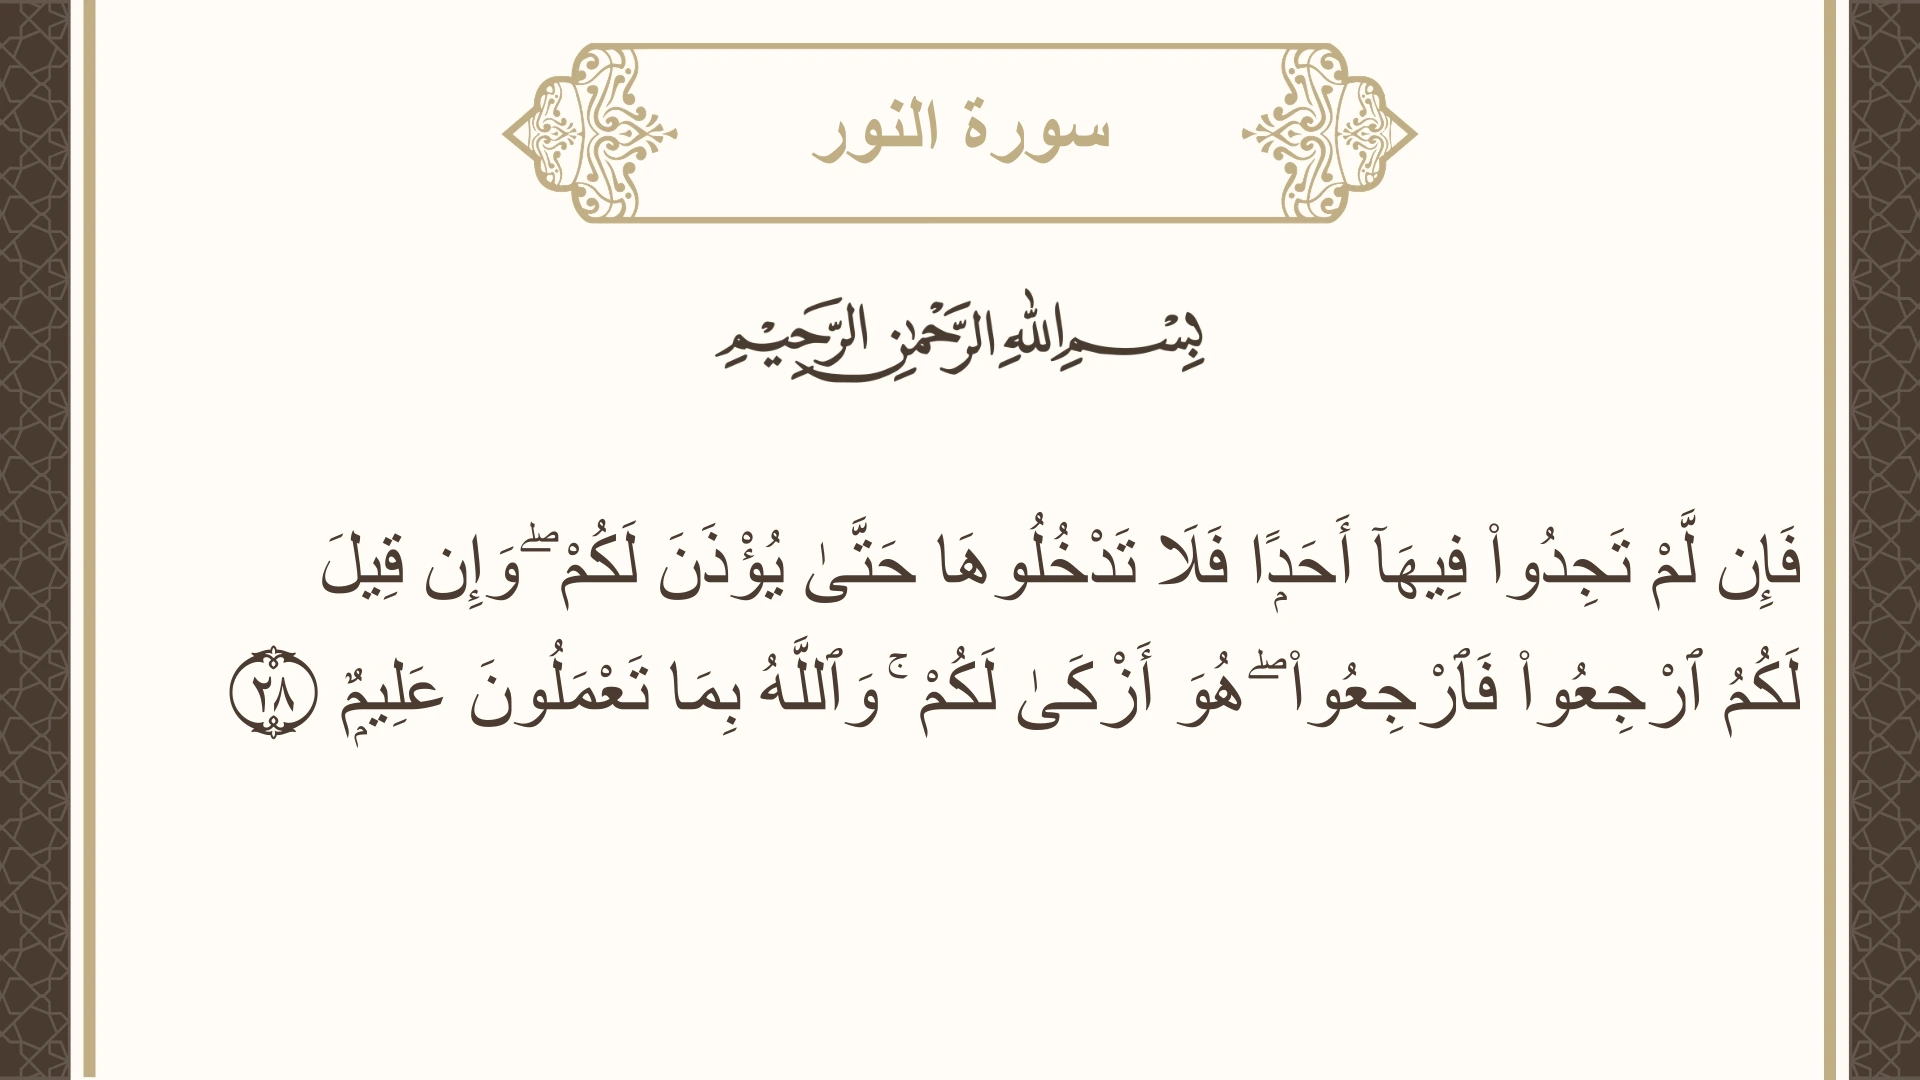 سورة النور
بِسْمِ اللهِ الرَّحْمٰنِ الرَّحِيْمِ
فَإِن لَّمْ تَجِدُوا۟ فِيهَآ أَحَدًۭا فَلَا تَدْخُلُوهَا حَتَّىٰ يُؤْذَنَ لَكُمْ ۖ وَإِن قِيلَ
لَكُمُ ٱرْجِعُوا۟ فَٱرْجِعُوا۟ ۖ هُوَ أَزْكَىٰ لَكُمْ ۚ وَٱللَّهُ بِمَا تَعْمَلُونَ عَلِيمٌۭ ٢٨